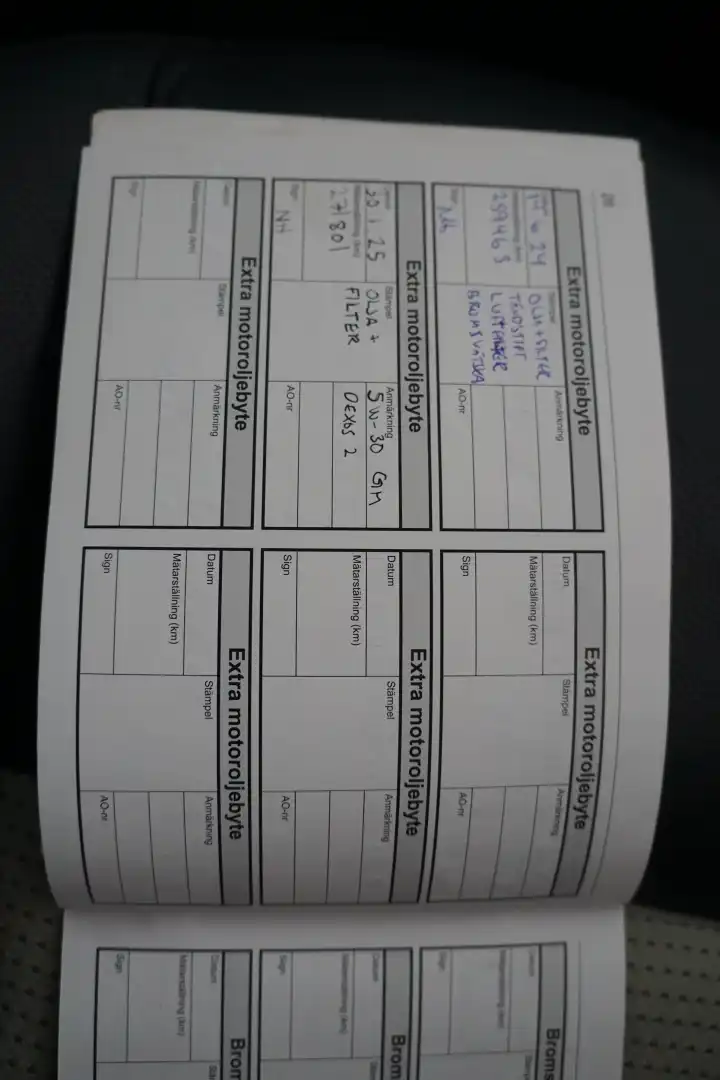 28
Extra motoroljebyte
Datum
Stämpel
Anmärkning
6 24
OLJA + FILTER
Mätarställning (km)
TÄNDSTIFT
259463
LUFTFILTER
BROMSVÄTSKA
Sign
AO-nr
Extra motoroljebyte
Datum
Stämpel
Anmärkning
20.1.25
OLJA +
5W-30 GM
Mätarställning (km)
271801
FILTER
DEXOS 2
Sign
NH
AO-nr
Extra motoroljebyte
Datum
Stämpel
Anmärkning
Mätarställning (km)
Sign
AO-nr
Extra motoroljebyte
Datum
Stämpel
Anmärkning
Mätarställning (km)
Sign
AO-nr
Extra motoroljebyte
Datum
Stämpel
Anmärkning
Mätarställning (km)
Sign
AO-nr
Extra motoroljebyte
Datum
Stämpel
Anmärkning
Mätarställning (km)
Sign
AO-nr
Broms
Datum
Mätarställning (km)
Sign
Brom
Datum
Mätarställning (km)
Sign
Brom
Datum
Mätarställning (km)
Sign